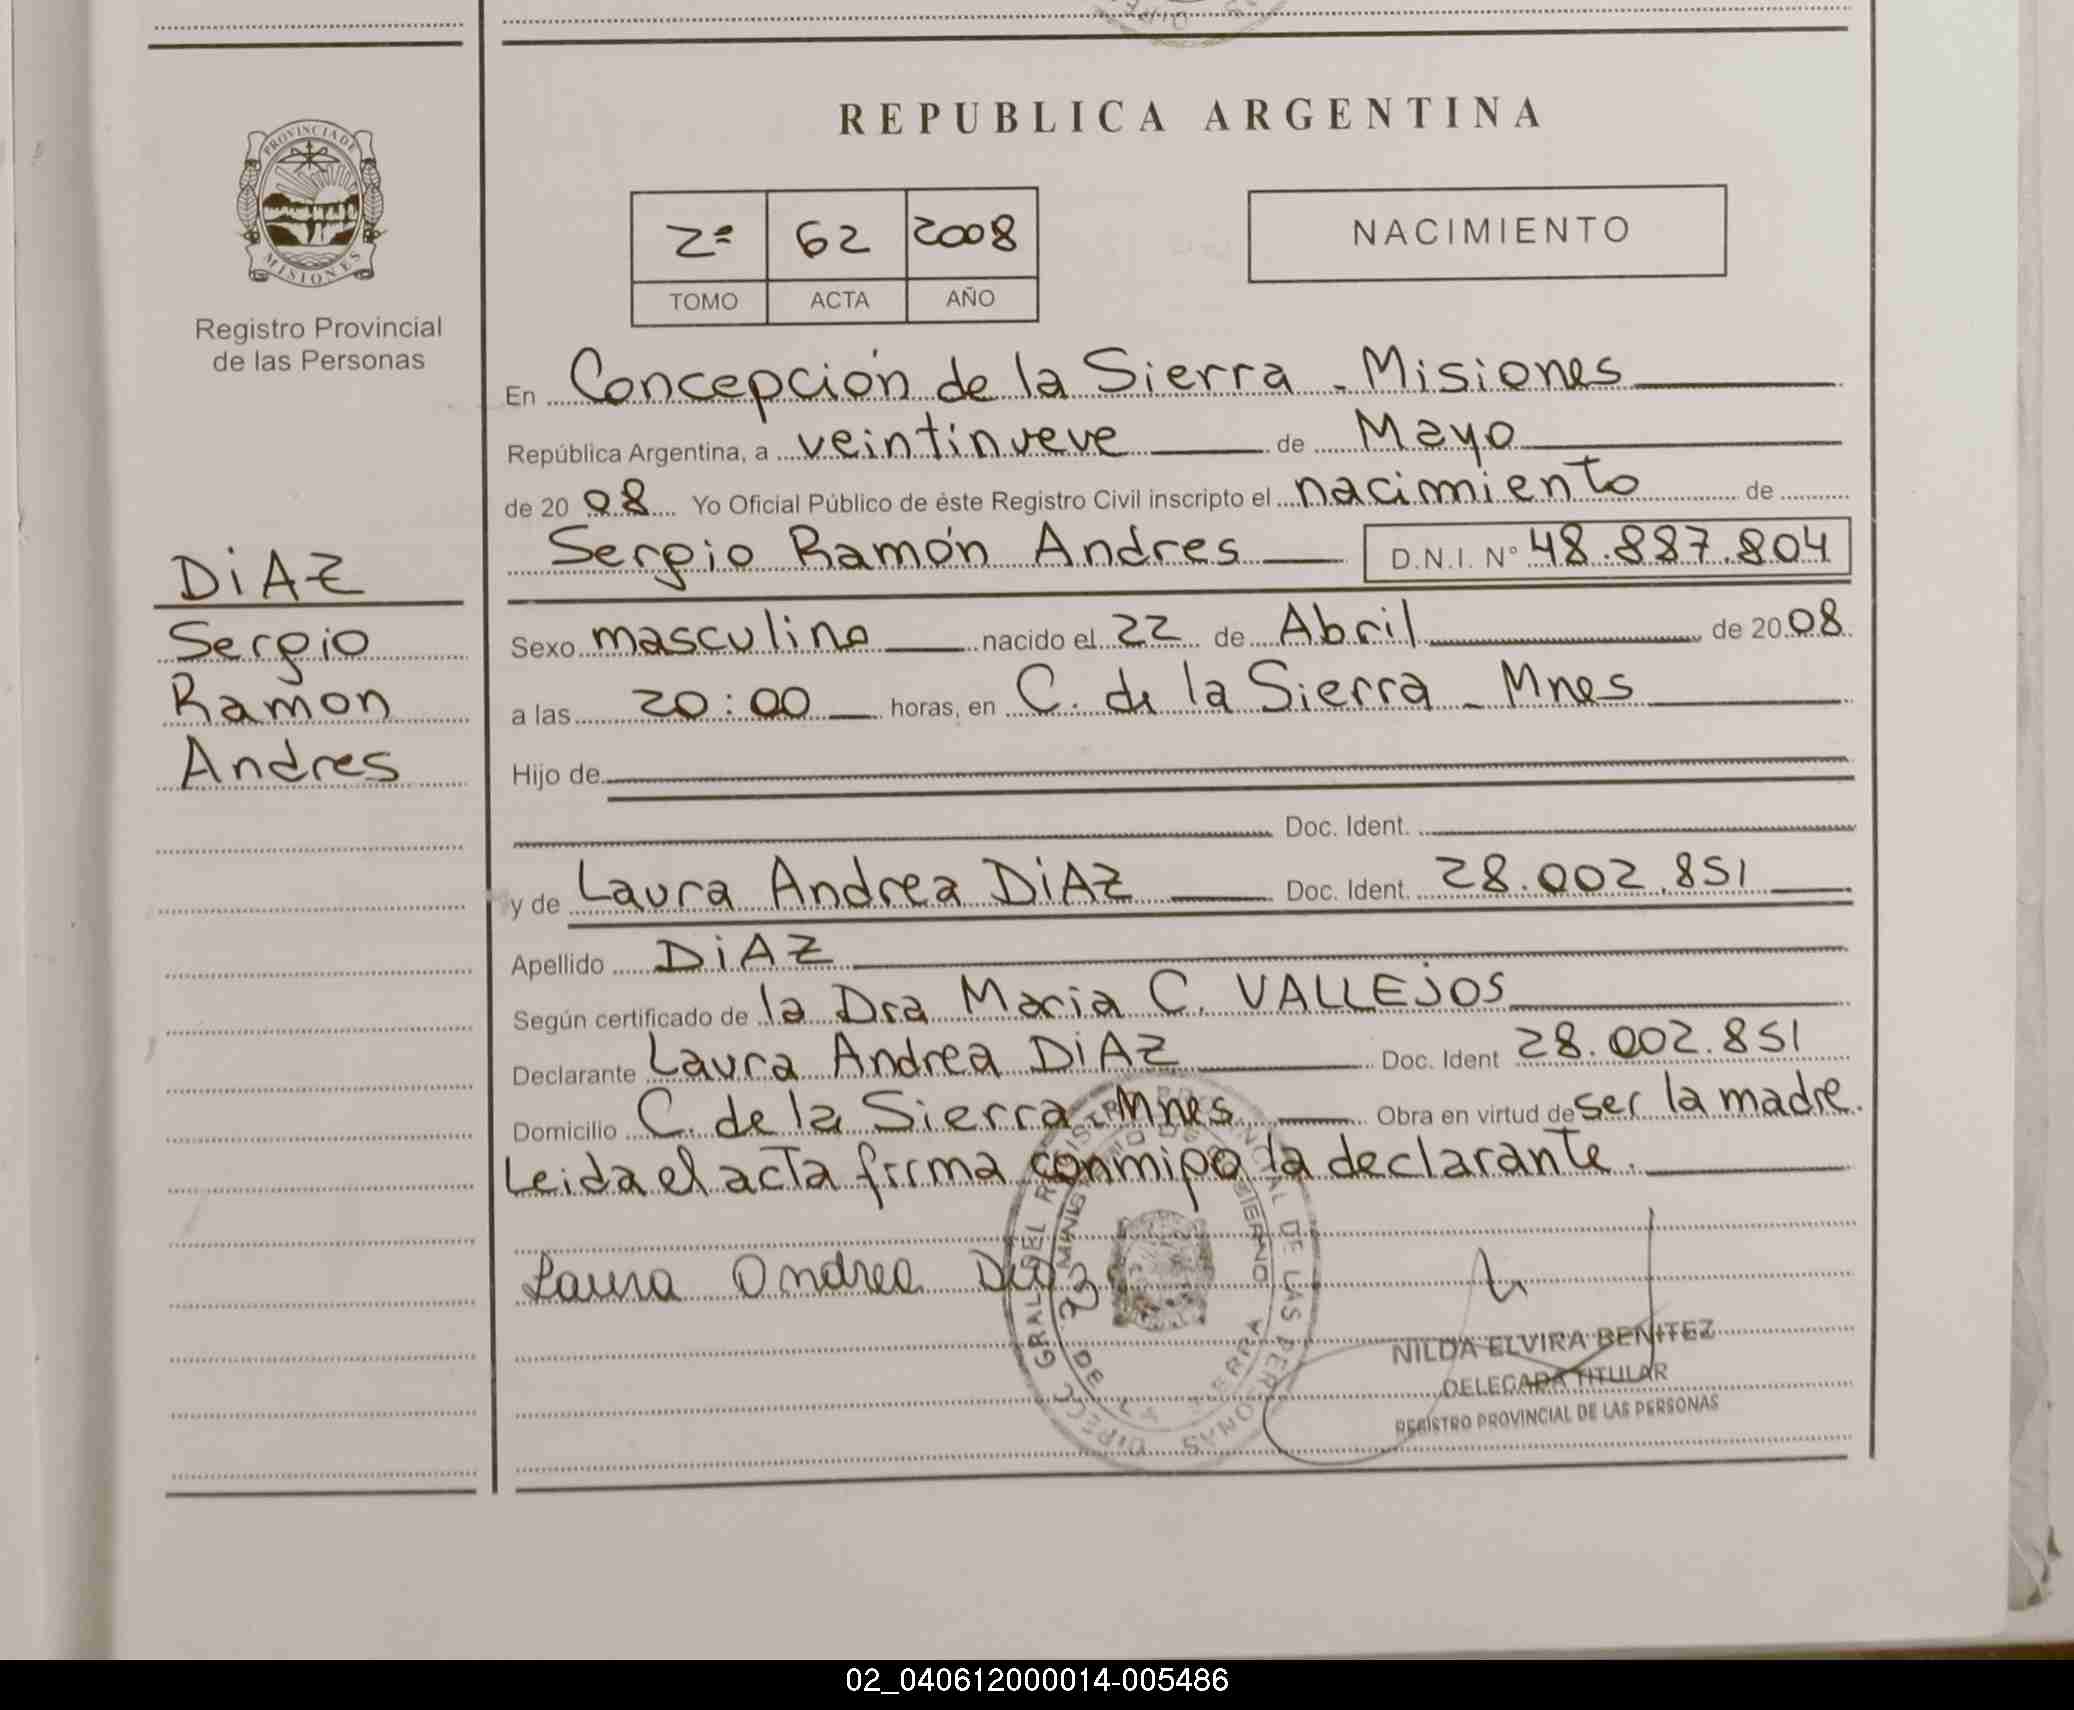 REPUBLICA ARGENTINA
PROVINCIA DE MISIONES
Registro Provincial
de las Personas
2ª 62 2008
TOMO ACTA AÑO
NACIMIENTO
DiAZ
Sergio
Ramon
Andres
En Concepción de la Sierra - Misiones
República Argentina, a veintinueve de Mayo
de 2008 Yo Oficial Público de éste Registro Civil inscripto el nacimiento de
Sergio Ramón Andres D.N.I. Nº 48.887.804
Sexo masculino nacido el 22 de Abril de 2008
a las 20:00 horas, en C. de la Sierra - Mnes
Hijo de
Doc. Ident.
y de Laura Andrea DiAZ Doc. Ident. 28.002.851
Apellido DiAZ
Según certificado de la Dra Maria C. VALLEjOS
Declarante Laura Andrea DiAZ Doc. Ident 28.002.851
Domicilio C. de la Sierra - Mnes Obra en virtud de ser la madre.
Leida el acta firma conmigo la declarante.
Laura Andrea Diaz
DIRECC. GRAL. DEL REGISTRO PROVINCIAL DE LAS PERSONAS
MINISTERIO DE GOBIERNO
DE LA SIERRA
NILDA ELVIRA BENITEZ
DELEGADA TITULAR
REGISTRO PROVINCIAL DE LAS PERSONAS
02_040612000014-005486